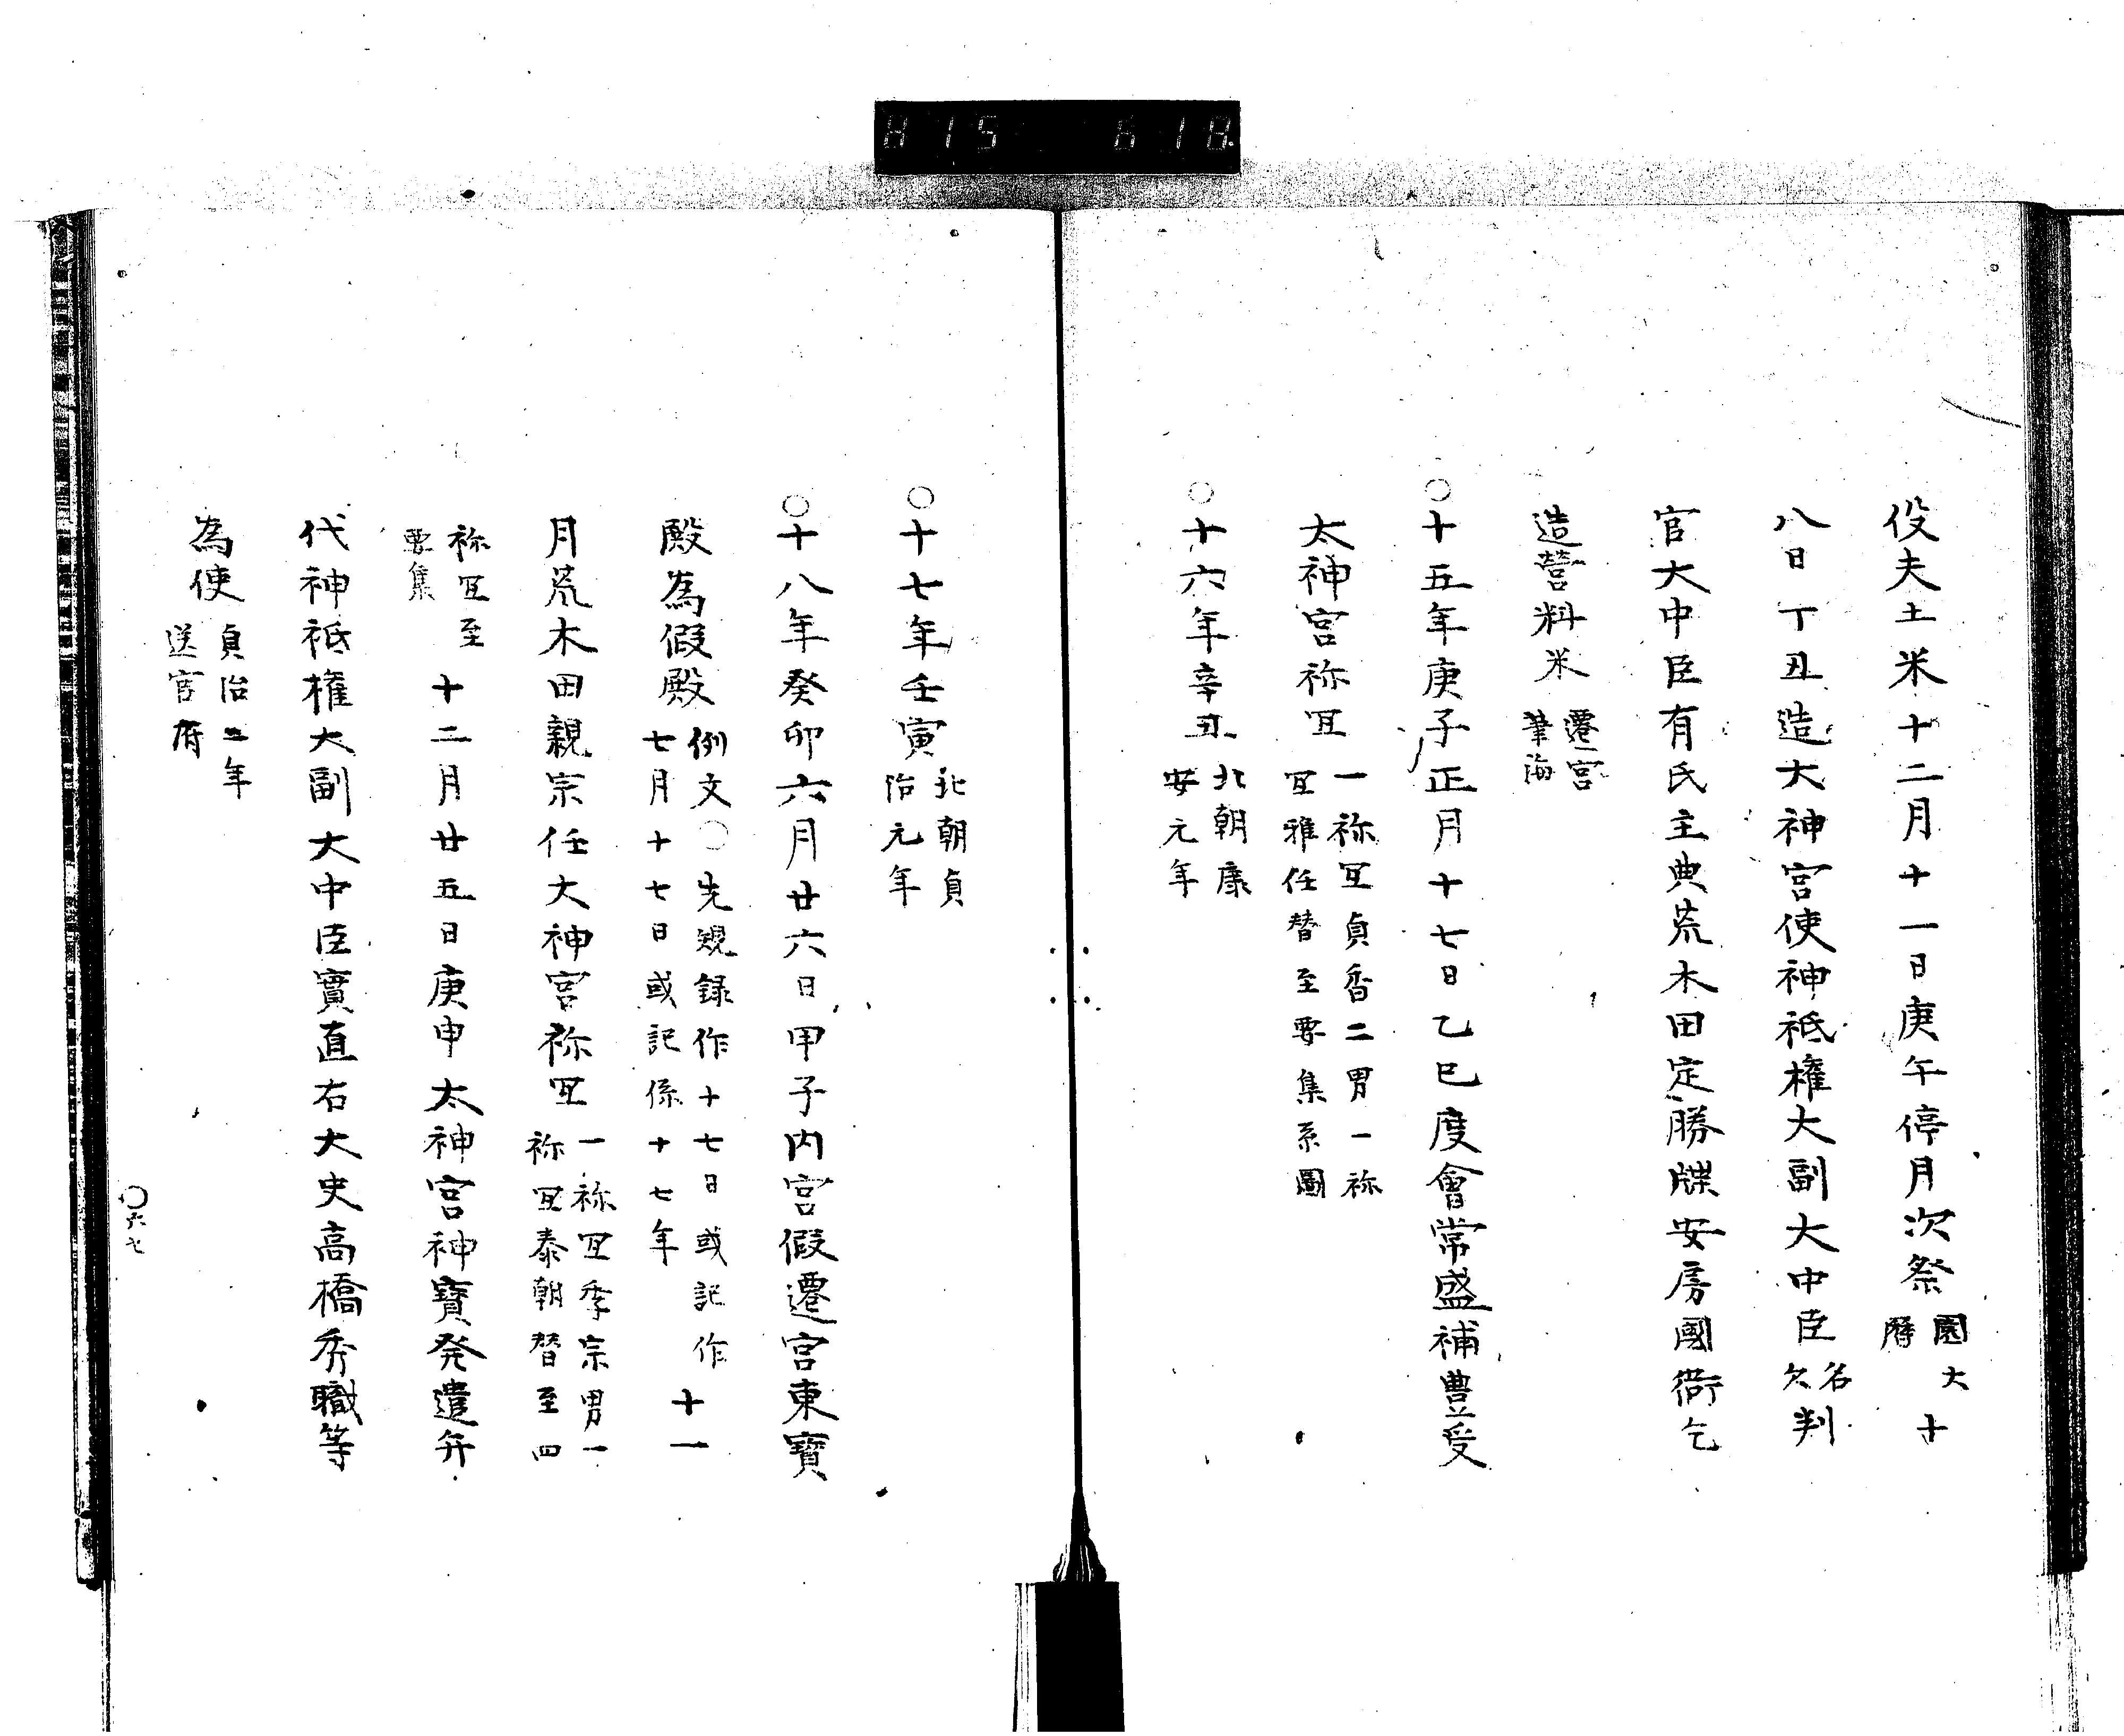 815 618
役夫土米十二月十一日庚午停月次祭園大暦十
八日丁丑造大神宮使神祇権大副大中臣名欠判
官大中臣有氏主典荒木田定勝牒安房國衙乞
造営料米遷宮筆海
○十五年庚子正月十七日乙巳度會常盛補豊受
太神宮祢冝一祢冝貞香二男一祢冝雅任替至要集系圖
○十六年辛丑北朝康安元年
○十七年壬寅北朝貞治元年
○十八年癸卯六月廿六日甲子内宮假遷宮東寶
殿為假殿例文○先規録作十七日或記作七月十七日或記係十七年十一
月荒木田親宗任大神宮祢冝一祢冝季宗男一祢冝泰朝替至四
祢冝至要集十二月廿五日庚申太神宮神寶発遣弁
代神祇権大副大中臣實直右大史高橋秀職等
為使貞治二年送官府
○六七